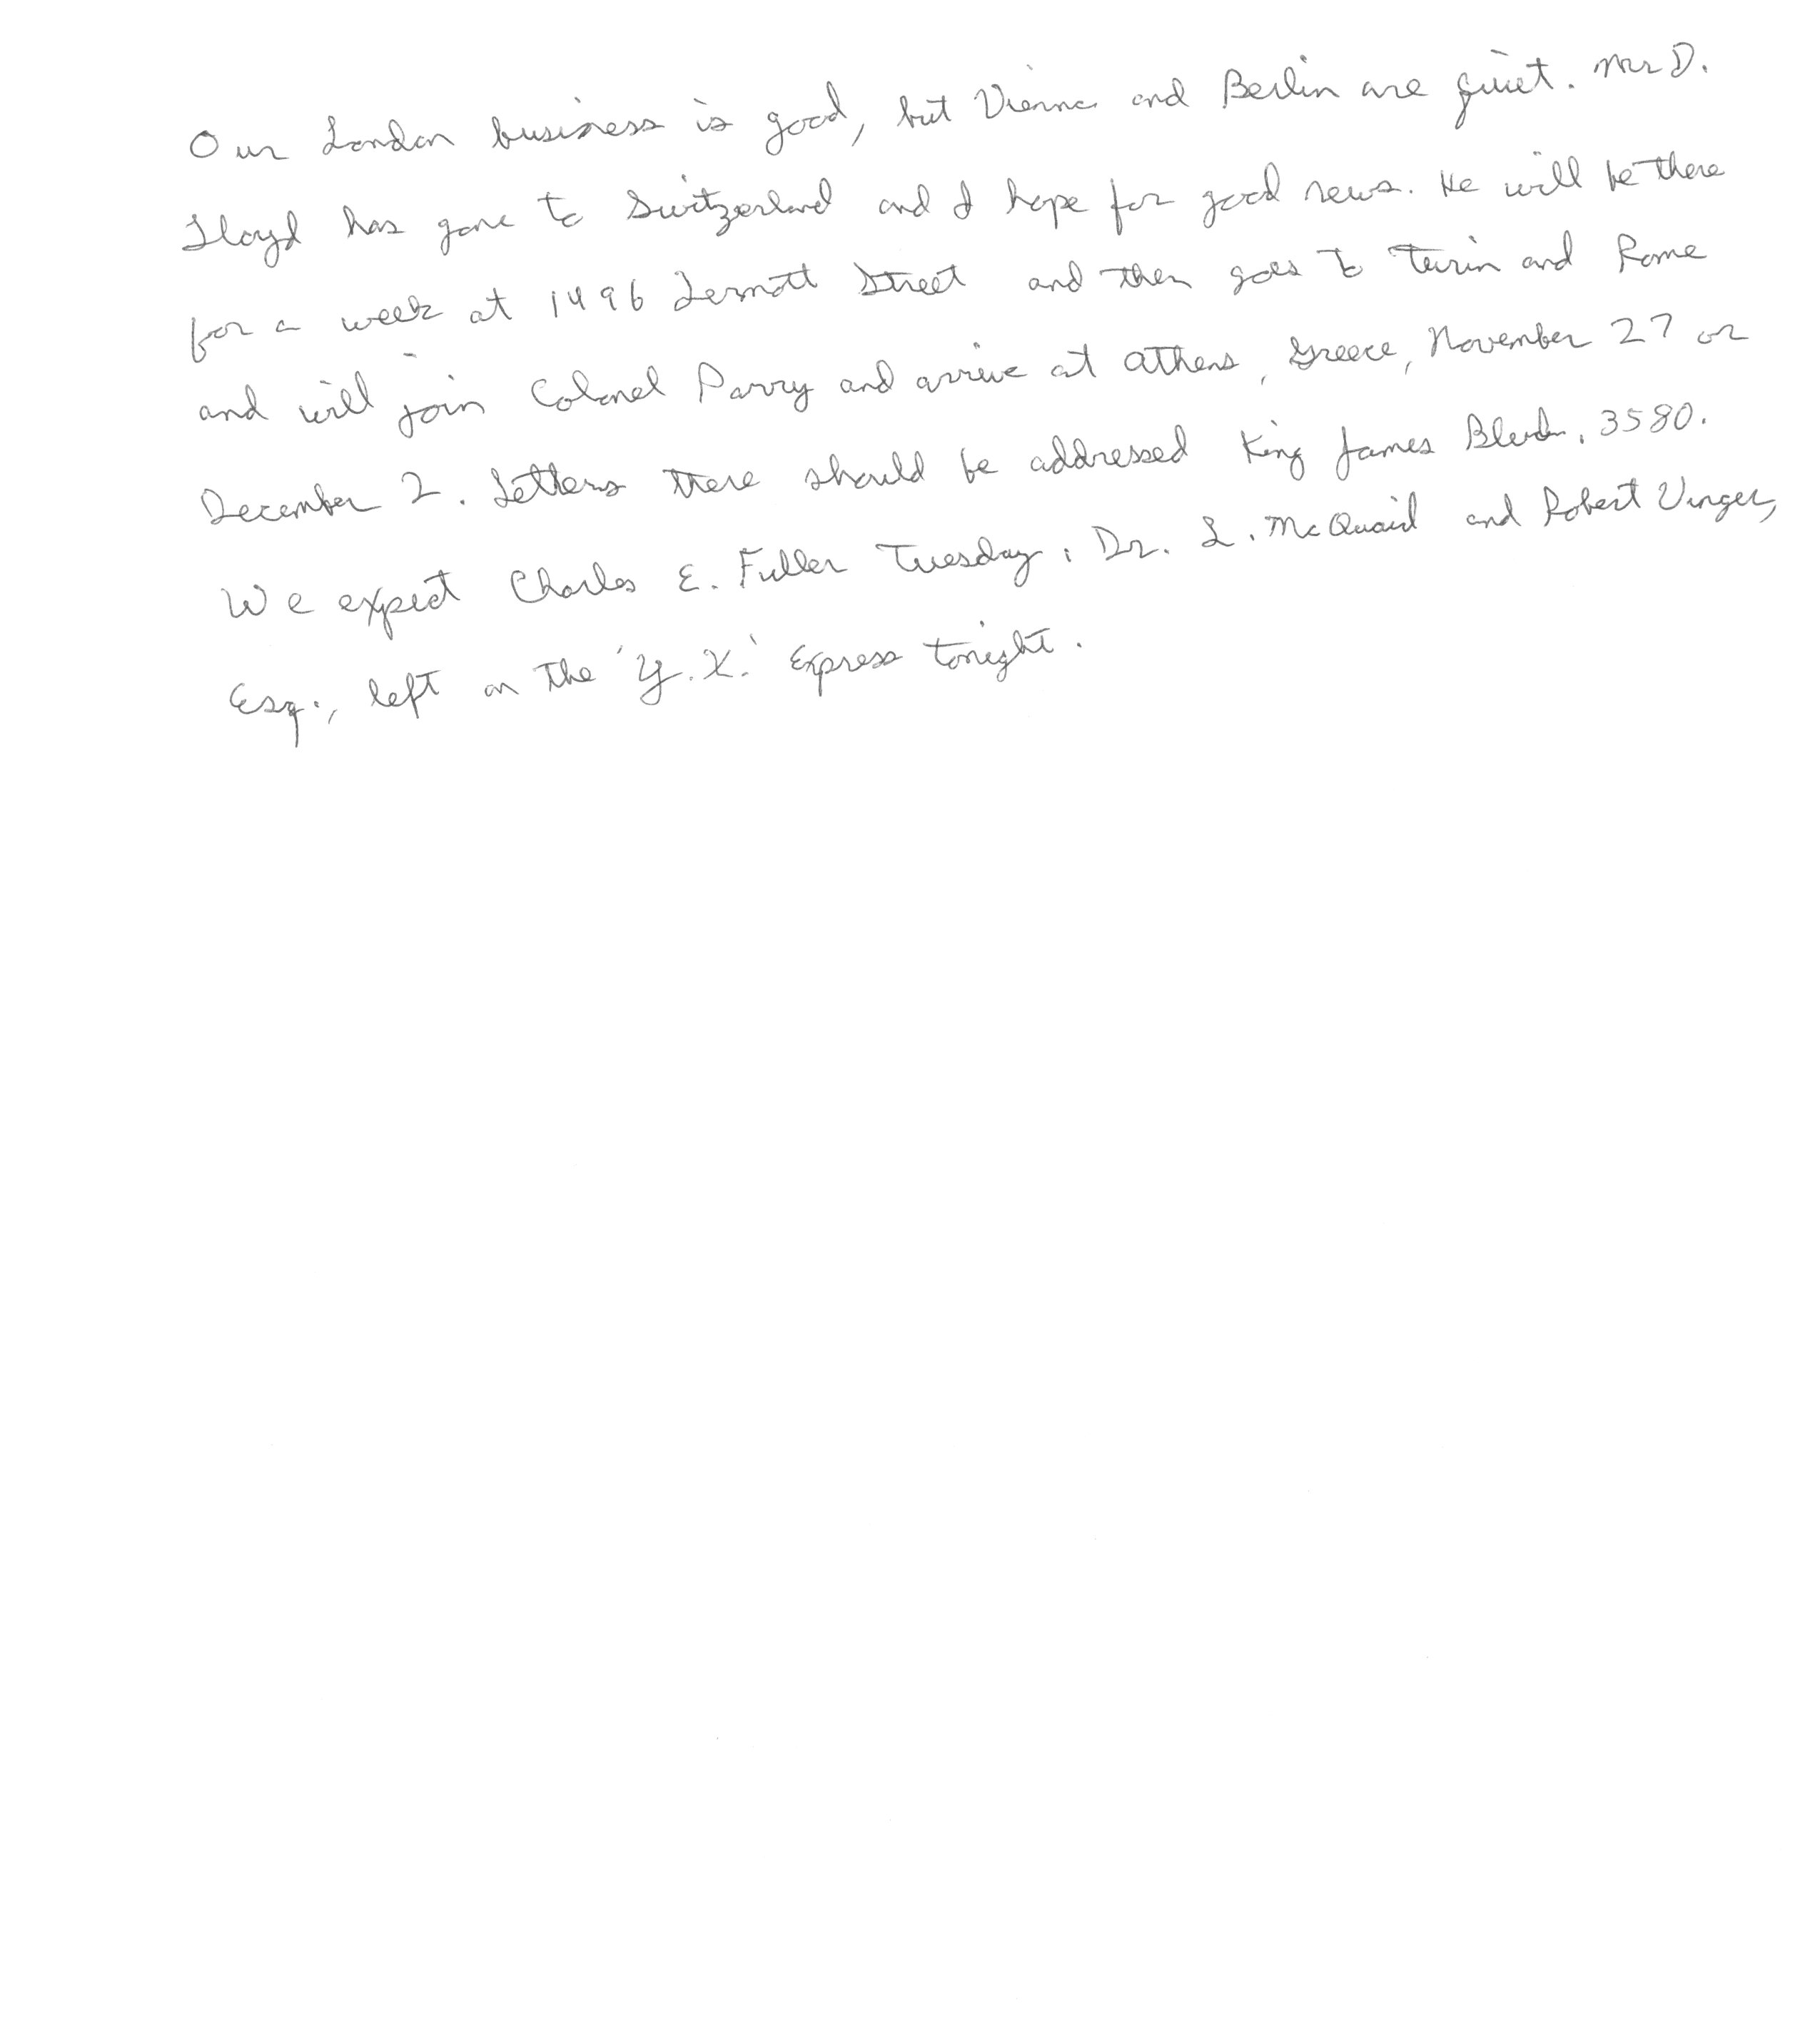 Our London business is good, but Vienna and Berlin are quiet. Mr D.
Lloyd has gone to Switzerland and I hope for good news. He will be there
for a week at 1496 Zermott Street and then goes to Turin and Rome
and will join Colonel Parry and arrive at Athens, Greece, November 27 or
December 2. Letters there should be addressed King James Blvd. 3580.
We expect Charles E. Fuller Tuesday. Dr. L. McQuaid and Robert Unger,
Esq., left on the 'Y.X.' Express tonight.